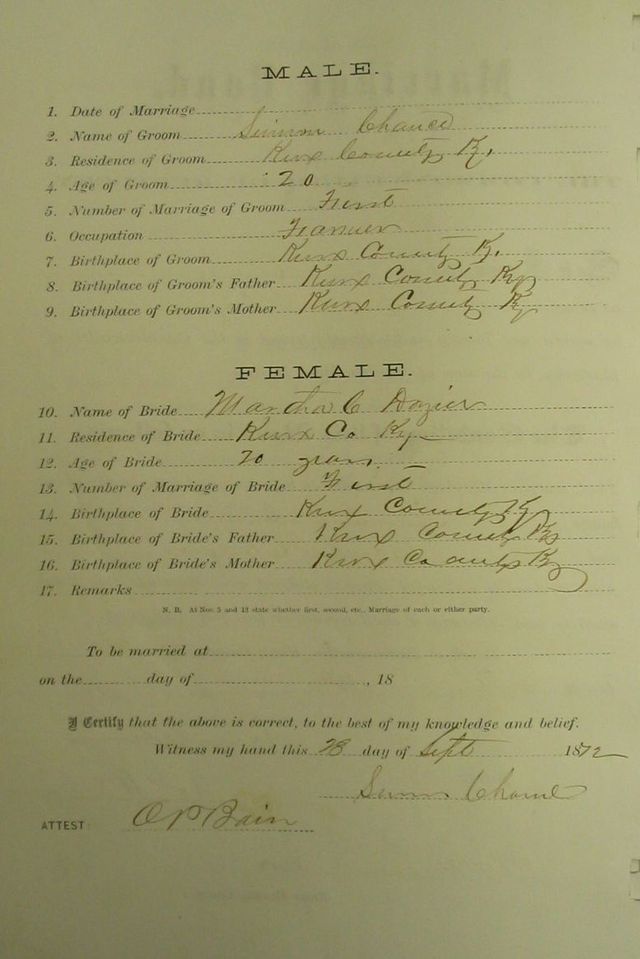 MALE.
1. Date of Marriage
2. Name of Groom Simion Chance
3. Residence of Groom Knox County Ky.
4. Age of Groom 20
5. Number of Marriage of Groom First
6. Occupation Farmer
7. Birthplace of Groom Knox County Ky.
8. Birthplace of Groom's Father Knox County Ky
9. Birthplace of Groom's Mother Knox County Ky
FEMALE.
10. Name of Bride Martha C Dozier
11. Residence of Bride Knox Co Ky
12. Age of Bride 20 years.
13. Number of Marriage of Bride First
14. Birthplace of Bride Knox County Ky
15. Birthplace of Bride's Father Knox County Ky
16. Birthplace of Bride's Mother Knox County Ky
17. Remarks
N. B. At Nos. 5 and 13 state whether first, second, etc., Marriage of each or either party.
To be married at
on the day of , 18
I Certify that the above is correct, to the best of my knowledge and belief.
Witness my hand this 28 day of Sept 1872
Chance
ATTEST: O P Bain